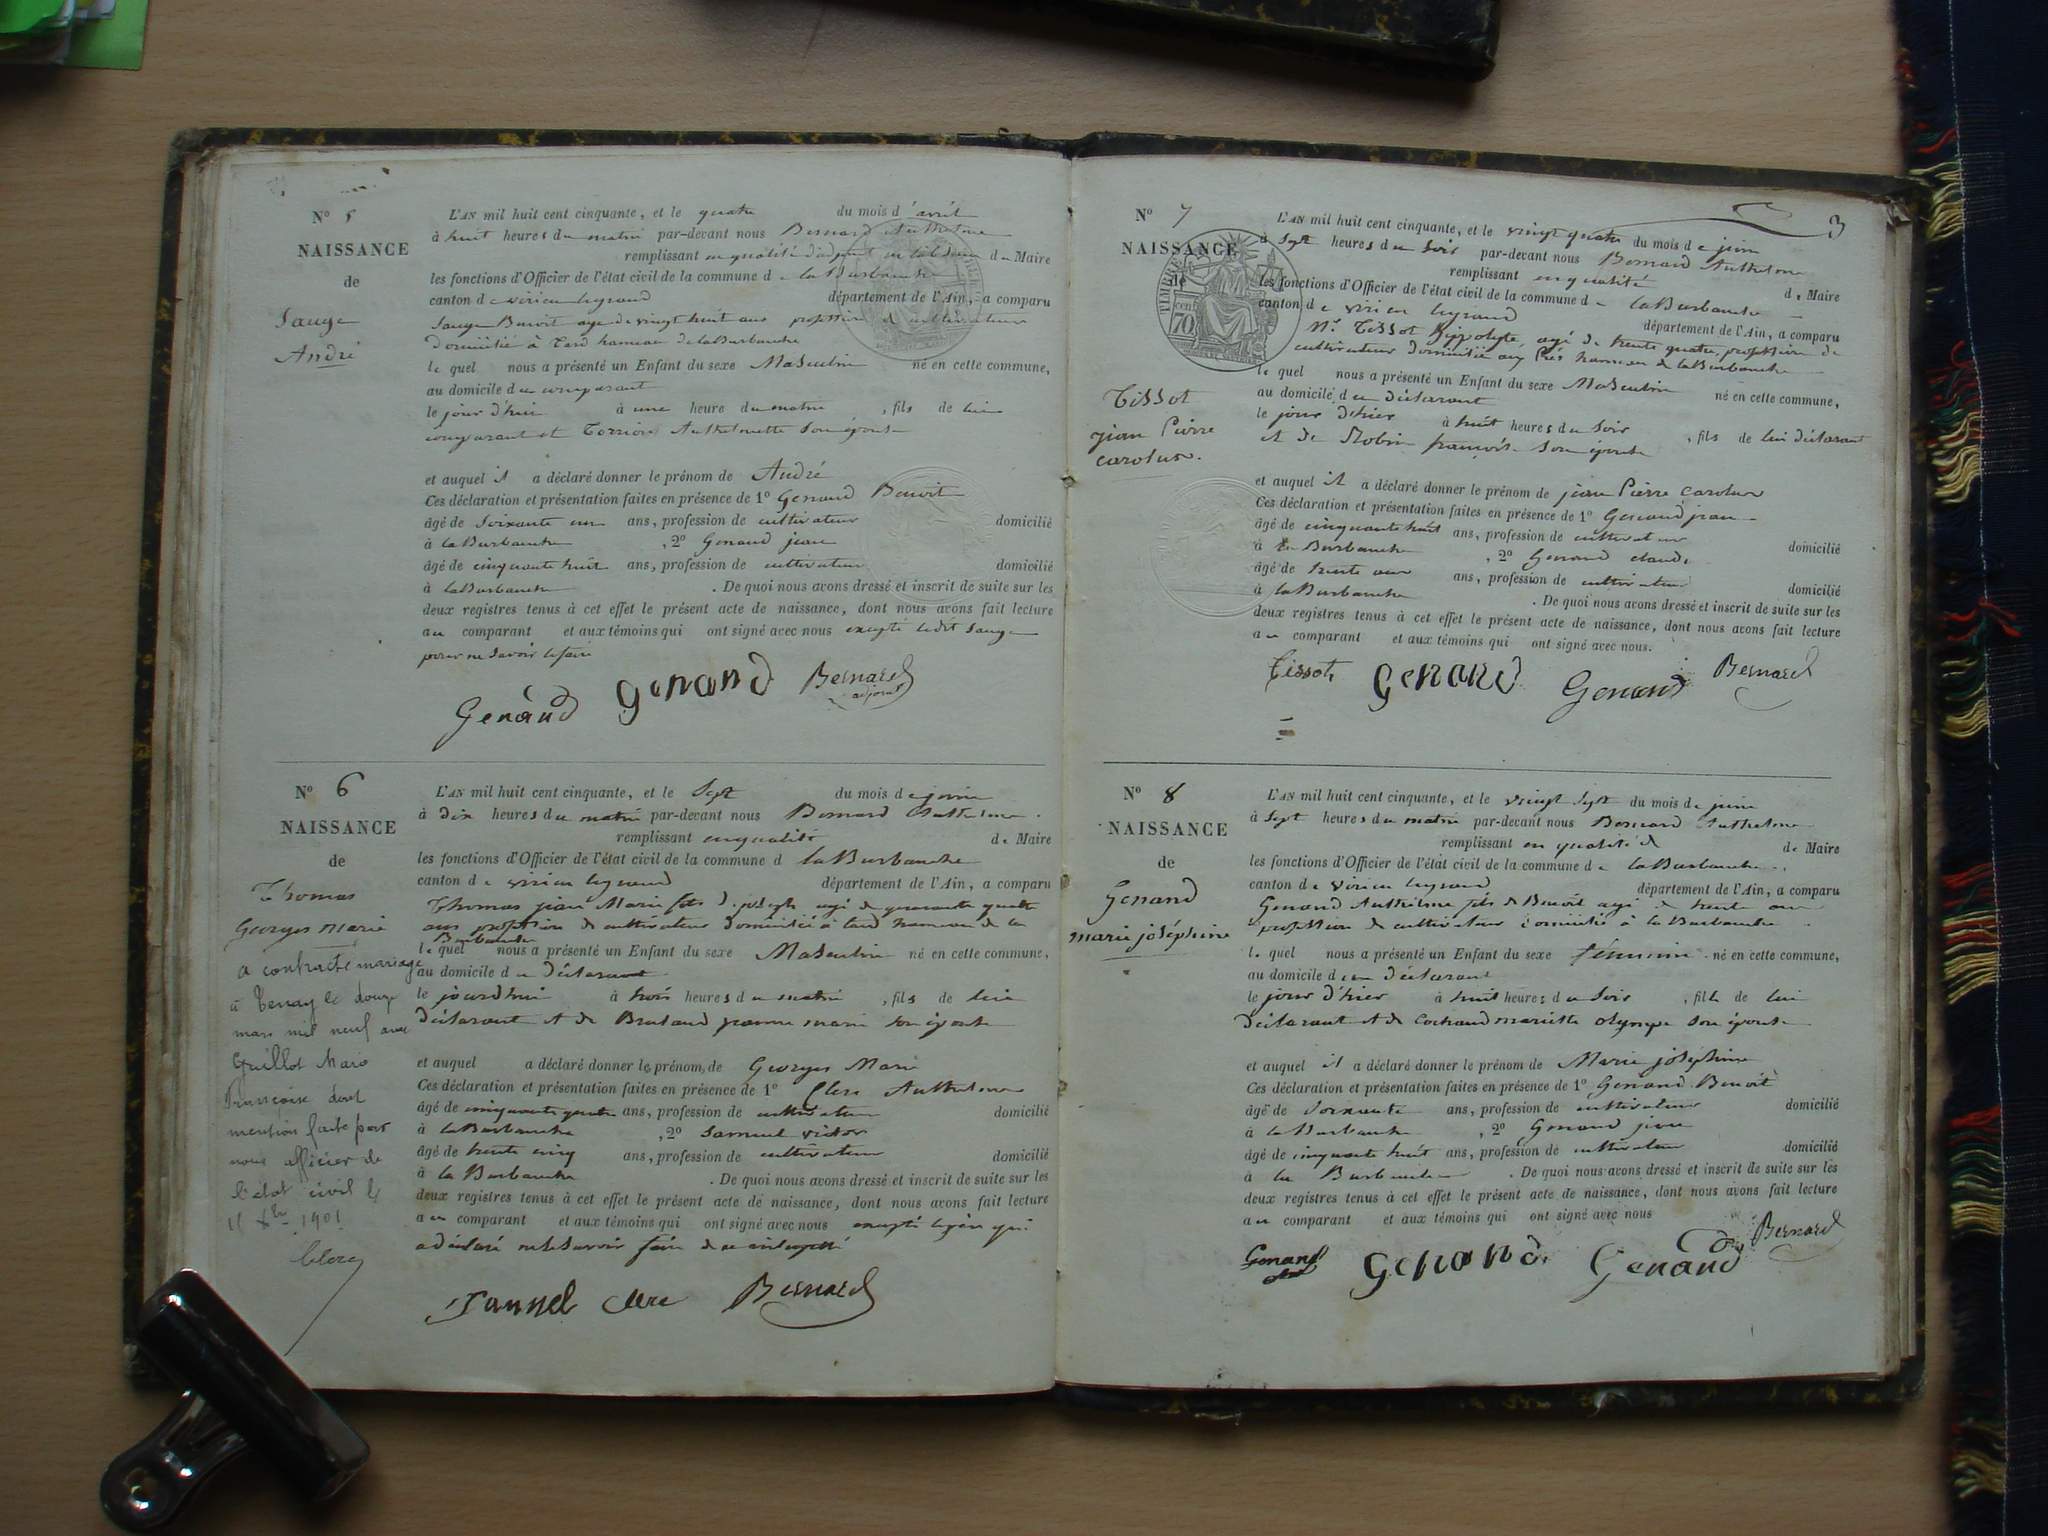 N° 5
NAISSANCE
de
Sauge
André
L'AN mil huit cent cinquante, et le quatre du mois d'avril
à huit heures du matin par-devant nous Bernard Anthelme
remplissant en qualité d'adjoint du Maire
les fonctions d'Officier de l'état civil de la commune de la Burbanche
canton de virieu legrand département de l'Ain, a comparu
Sauge Benoit age de vingt huit ans profession de cultivateur
domicilié à Tard hameau de la Burbanche
le quel nous a présenté un Enfant du sexe Masculin né en cette commune,
au domicile du comparant
le jour d'hui à une heure du matin, fils de lui
comparant et Torrion Anthelmette son épouse
et auquel il a déclaré donner le prénom de André
Ces déclaration et présentation faites en présence de 1° Genand Benoit
âgé de soixante un ans, profession de cultivateur domicilié
à la Burbanche, 2° Genand jean
âgé de cinquante huit ans, profession de cultivateur domicilié
à la Burbanche. De quoi nous avons dressé et inscrit de suite sur les
deux registres tenus à cet effet le présent acte de naissance, dont nous avons fait lecture
au comparant et aux témoins qui ont signé avec nous excepté ledit Sauge
pour ne savoir le faire
Genand Genand Bernard
adjoint
N° 6
NAISSANCE
de
Thomas
Georges Marie
a contracté mariage
à Tenay le douze
mars mil neuf avec
Guillot Marie
Françoise dont
mention faite par
nous officier de
l'état civil le
1901
Clerc
L'AN mil huit cent cinquante, et le Sept du mois de juin
à dix heures du matin par-devant nous Bernard Anthelme
remplissant en qualité de Maire
les fonctions d'Officier de l'état civil de la commune d la Burbanche
canton de virieu legrand département de l'Ain, a comparu
Thomas jean Marie fils d. joseph agé de quarante quatre
ans profession de cultivateur domicilié à tard hameau de la
Burbanche
le quel nous a présenté un Enfant du sexe Masculin né en cette commune,
au domicile du déclarant
le jourdhui à trois heures du matin, fils de lui
déclarant et de jeanne marie son épouse
et auquel a déclaré donner le prénom de Georges Marie
Ces déclaration et présentation faites en présence de 1° Clerc Anthelme
âgé de cinquante quatre ans, profession de cultivateur domicilié
à la Burbanche, 2° Samuel victor
âgé de trente cinq ans, profession de cultivateur domicilié
à la Burbanche. De quoi nous avons dressé et inscrit de suite sur les
deux registres tenus à cet effet le présent acte de naissance, dont nous avons fait lecture
au comparant et aux témoins qui ont signé avec nous excepté le père qui
a déclaré ne le savoir faire de ce interpellé
Samuel Clerc Bernard
3
N° 7
NAISSANCE
de
Tissot
jean Pierre
carolus.
TIMBRE
70
L'AN mil huit cent cinquante, et le vingt quatre du mois de juin
à sept heures du soir par-devant nous Bernard Anthelme
remplissant en qualité de Maire
les fonctions d'Officier de l'état civil de la commune de la Burbanche
canton de virieu legrand département de l'Ain, a comparu
Mr. Tissot hippolyte, agé de trente quatre, profession de
cultivateur domicilié hameau de la Burbanche
le quel nous a présenté un Enfant du sexe Masculin né en cette commune,
au domicile du déclarant
le jour d'hier à huit heures du soir, fils de lui déclarant
et de françoise son épouse
et auquel il a déclaré donner le prénom de jean Pierre carolus
Ces déclaration et présentation faites en présence de 1° Genand jean
âgé de cinquante huit ans, profession de cultivateur domicilié
à la Burbanche, 2° Genand claude
âgé de trente ans, profession de cultivateur domicilié
à la Burbanche. De quoi nous avons dressé et inscrit de suite sur les
deux registres tenus à cet effet le présent acte de naissance, dont nous avons fait lecture
au comparant et aux témoins qui ont signé avec nous.
Tissot Genand Genand Bernard
N° 8
NAISSANCE
de
Genand
marie joséphine
L'AN mil huit cent cinquante, et le vingt sept du mois de juin
à sept heures du matin par-devant nous Bernard Anthelme
remplissant en qualité d de Maire
les fonctions d'Officier de l'état civil de la commune de la Burbanche
canton de virieu legrand département de l'Ain, a comparu
Genand Anthelme fils de Benoit agé de trente ans
profession de cultivateur domicilié à la Burbanche
le quel nous a présenté un Enfant du sexe féminin né en cette commune,
au domicile du déclarant
le jour d'hier à huit heures du soir, fille de lui
déclarant et de Cochand mariette olympe son épouse
et auquel il a déclaré donner le prénom de Marie joséphine
Ces déclaration et présentation faites en présence de 1° Genand Benoit
âgé de soixante ans, profession de cultivateur domicilié
à la Burbanche, 2° Genand jean
âgé de cinquante huit ans, profession de cultivateur domicilié
à la Burbanche. De quoi nous avons dressé et inscrit de suite sur les
deux registres tenus à cet effet le présent acte de naissance, dont nous avons fait lecture
au comparant et aux témoins qui ont signé avec nous
Genand Genand Genand Bernard